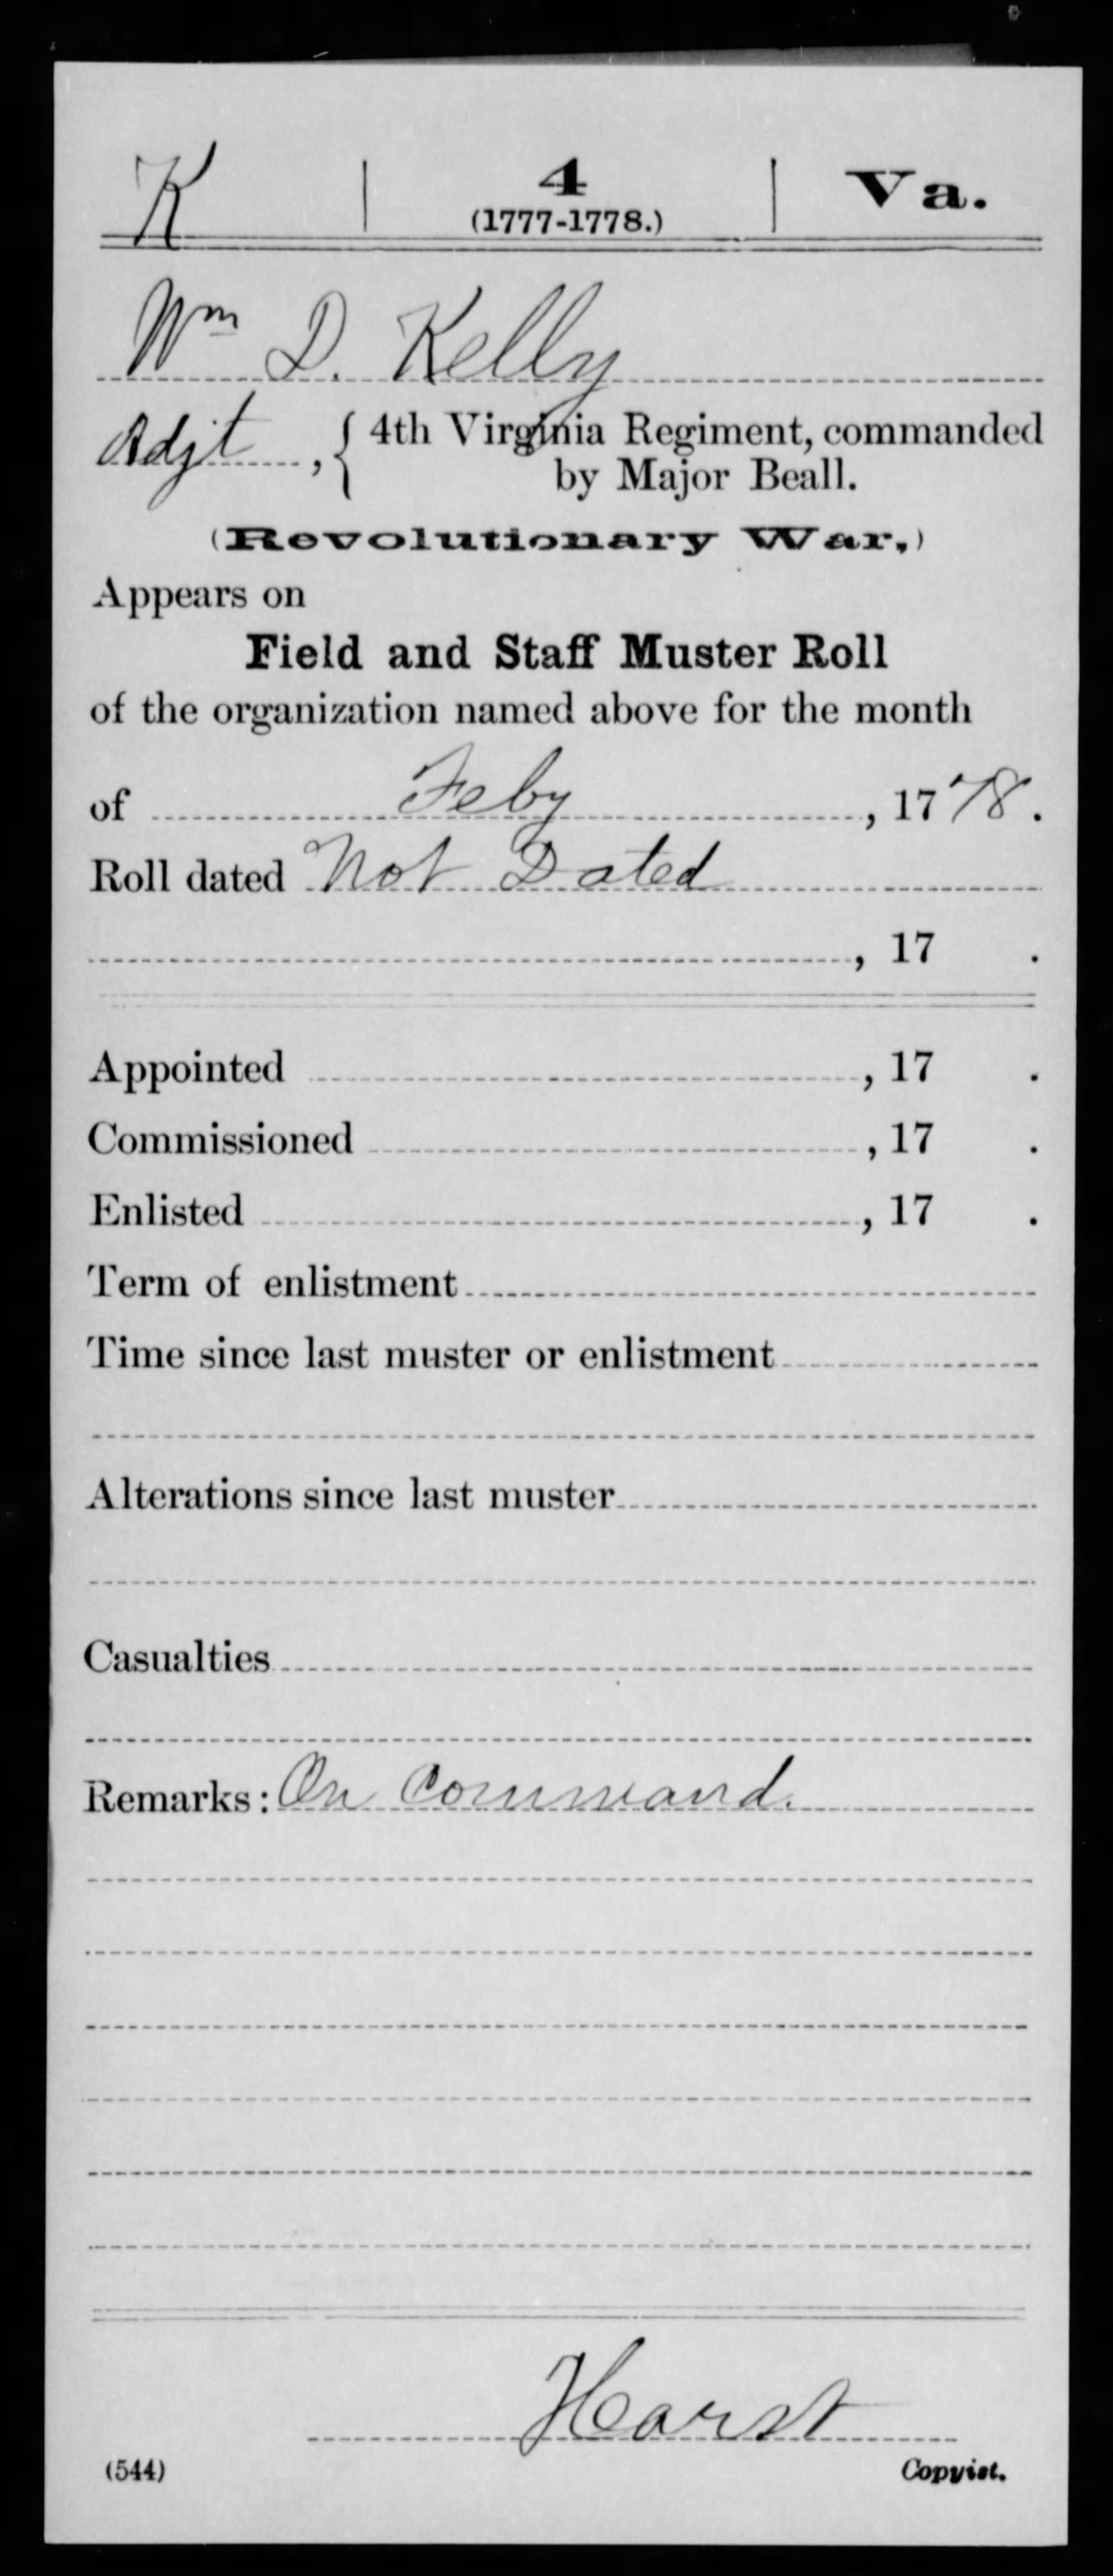 K | 4 | Va.
(1777-1778.)
Wm D. Kelly
Adjt, { 4th Virginia Regiment, commanded
by Major Beall.
(Revolutionary War.)
Appears on
Field and Staff Muster Roll
of the organization named above for the month
of Feby, 1778.
Roll dated Not Dated
, 17 .
Appointed , 17 .
Commissioned , 17 .
Enlisted , 17 .
Term of enlistment
Time since last muster or enlistment
Alterations since last muster
Casualties
Remarks: On Command.
Harst
(544) Copyist.